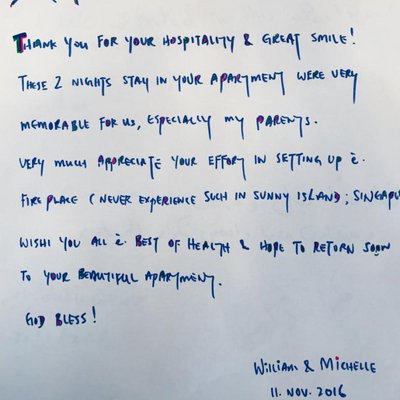 THANK YOU FOR YOUR HOSPITALITY & GREAT SMILE!
THESE 2 NIGHTS STAY IN YOUR APARTMENT WERE VERY
MEMORABLE FOR US, ESPECIALLY MY PARENTS.
VERY MUCH APPRECIATE YOUR EFFORT IN SETTING UP È.
FIRE PLACE (NEVER EXPERIENCE SUCH IN SUNNY ISLAND; SINGAPU
WISH YOU ALL È. BEST OF HEALTH & HOPE TO RETURN SOON
TO YOUR BEAUTIFUL APARTMENT.
GOD BLESS!
WILLIAM & MICHELLE
11. NOV. 2016